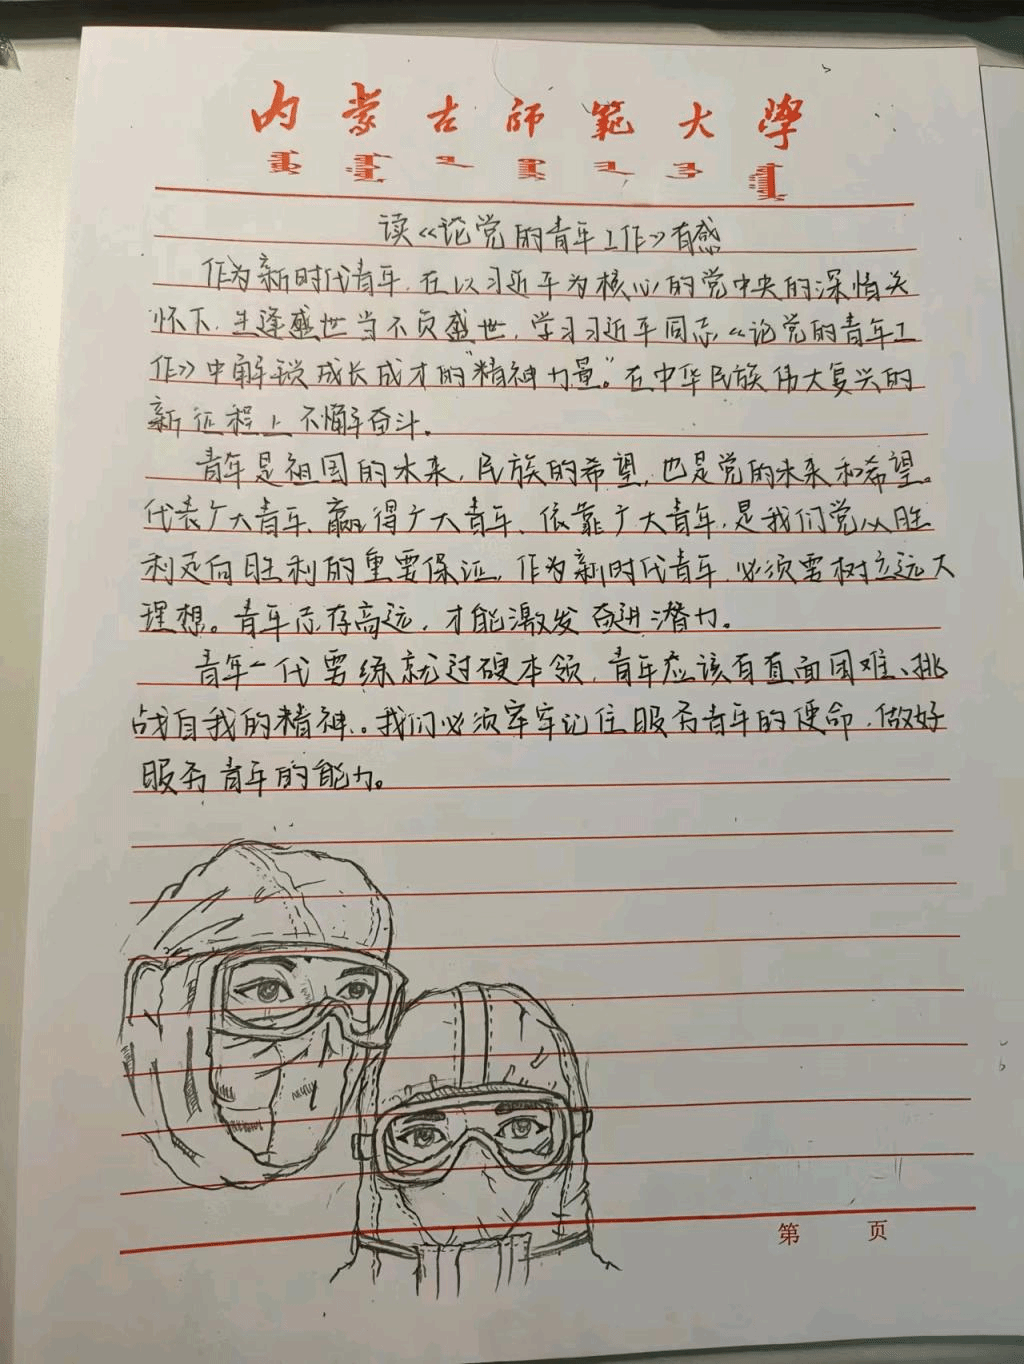 内蒙古师范大学
读《论党的青年工作》有感
作为新时代青年，在以习近平为核心的党中央的深情关
怀下，生逢盛世当不负盛世，学习习近平同志《论党的青年工
作》中解锁成长成才的“精神力量”。在中华民族伟大复兴的
新征程上不懈奋斗。
青年是祖国的未来，民族的希望，也是党的未来和希望。
代表广大青年、赢得广大青年、依靠广大青年，是我们党从胜
利走向胜利的重要保证，作为新时代青年，必须要树立远大
理想。青年志存高远，才能激发奋进潜力。
青年一代要练就过硬本领，青年应该有直面困难、挑
战自我的精神。我们必须牢牢记住服务青年的使命，做好
服务青年的能力。
第 页